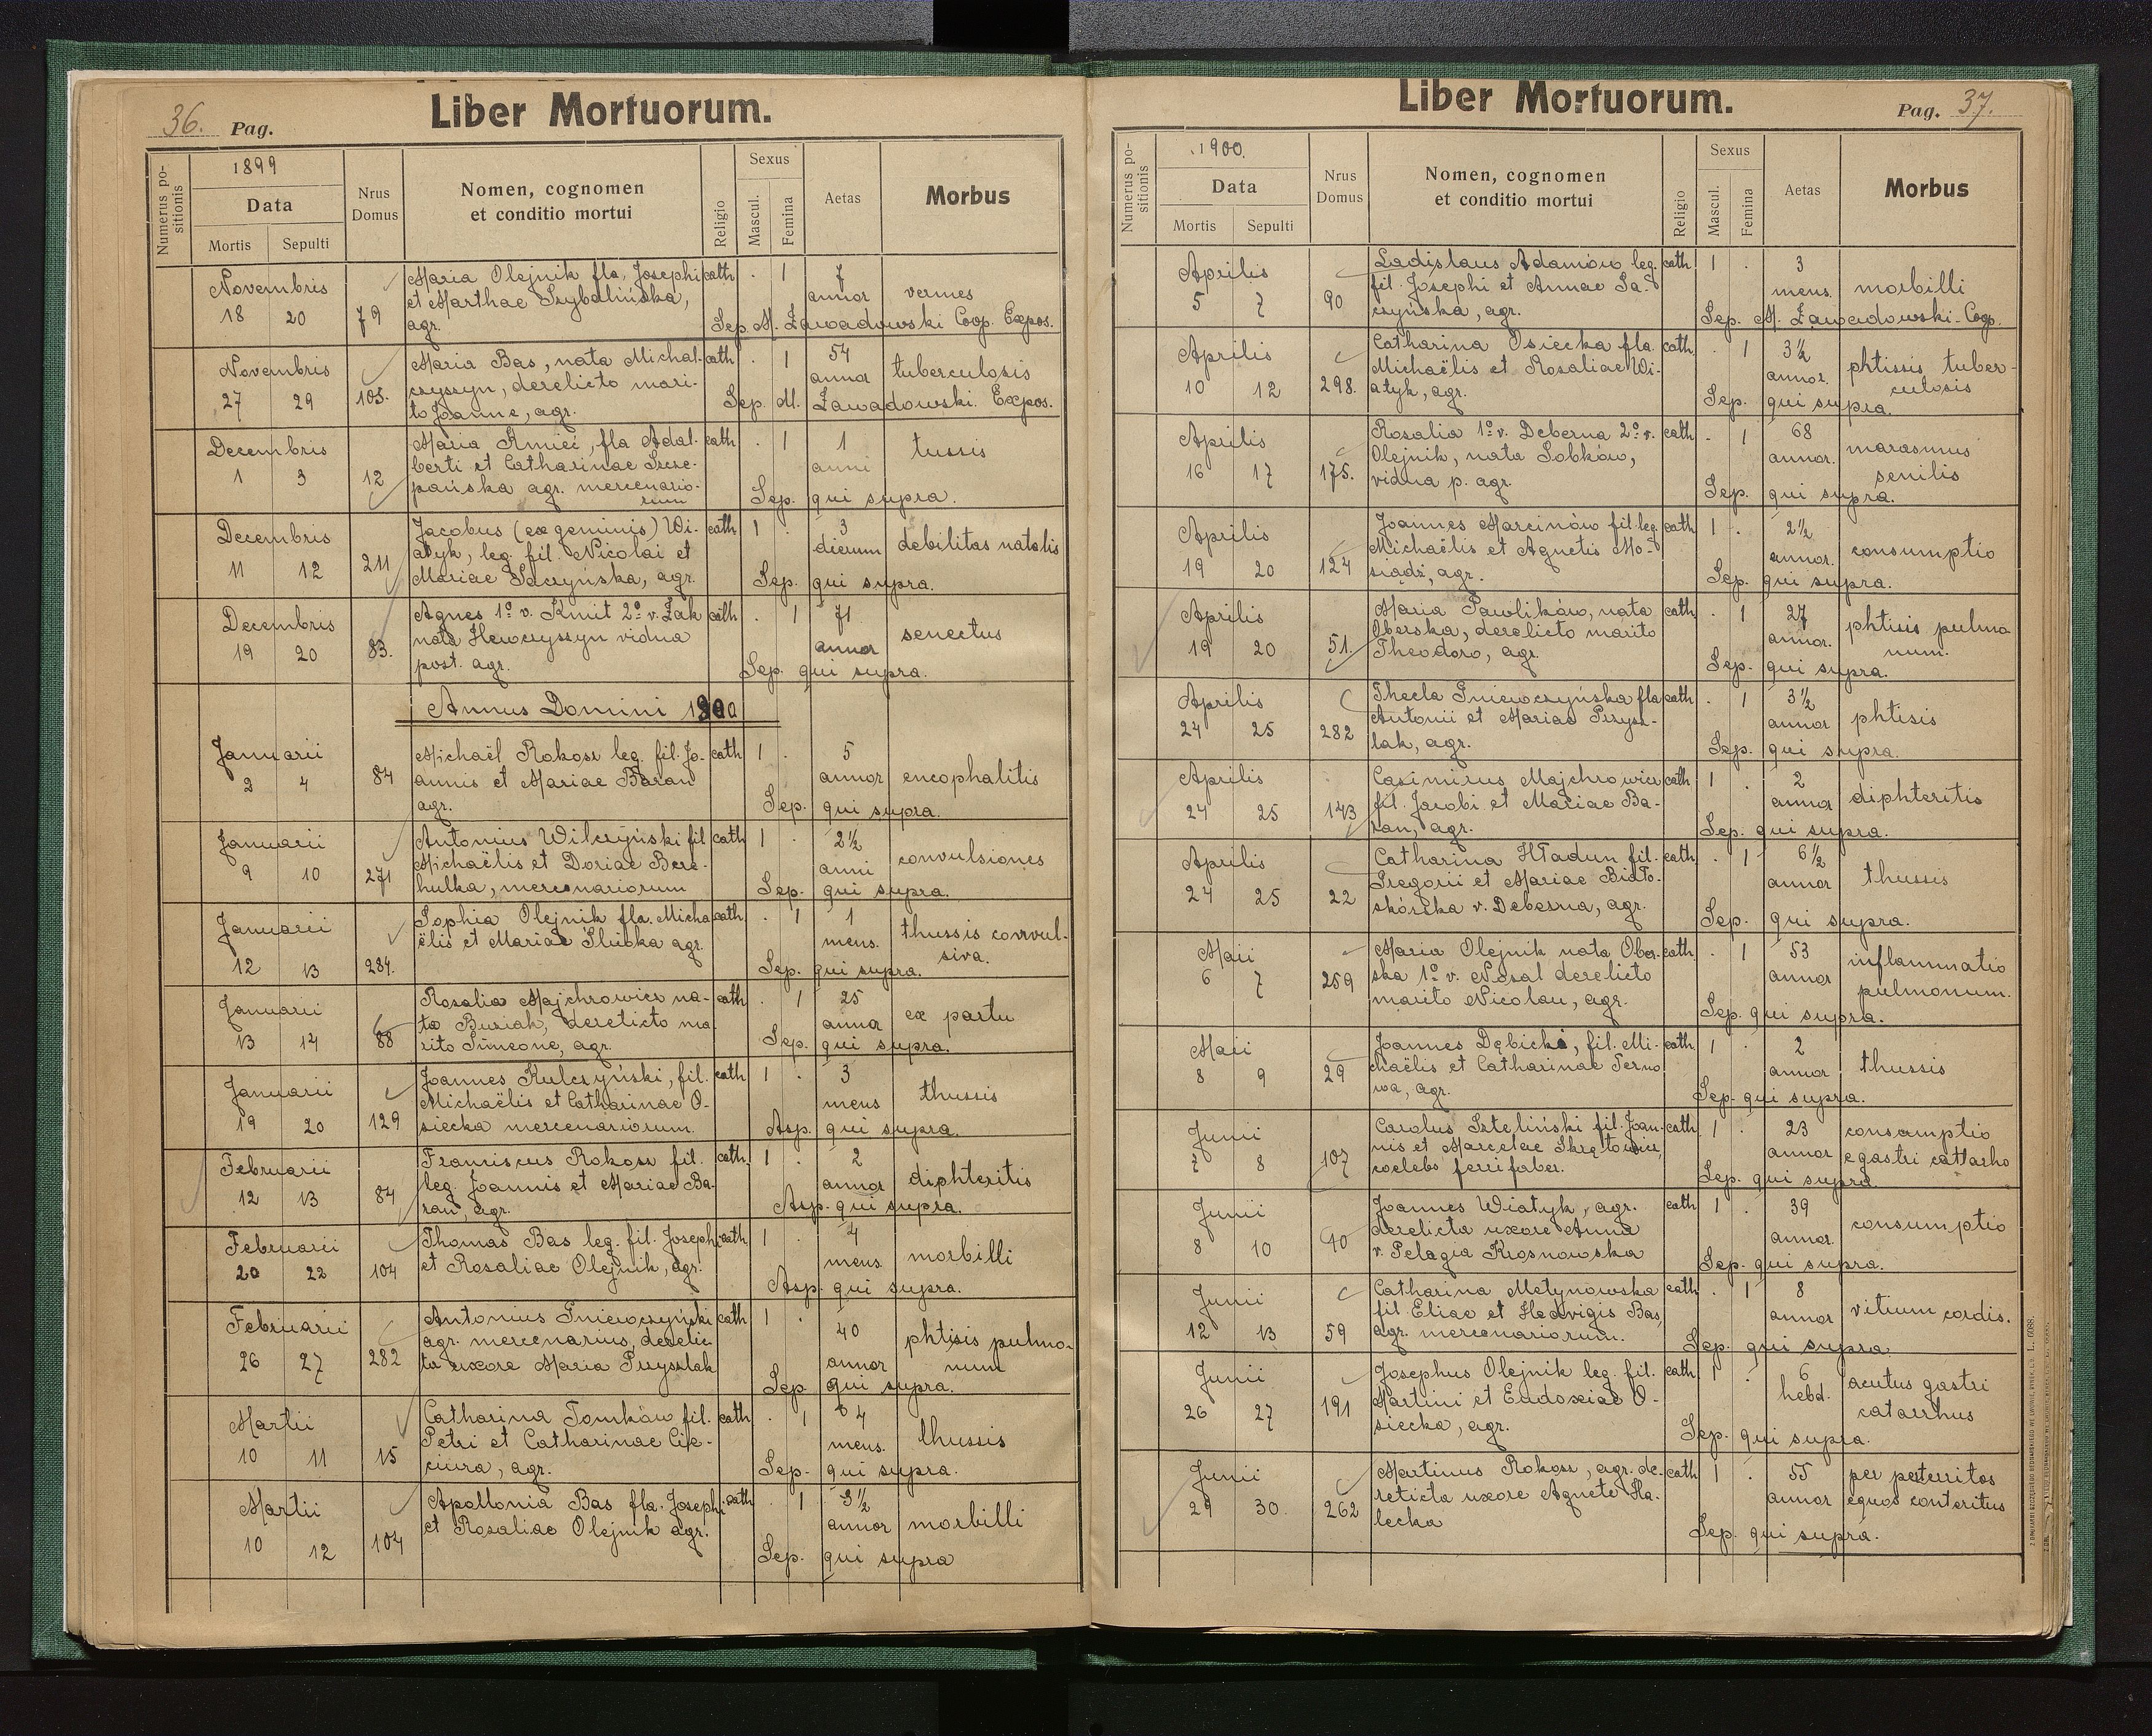 36. Pag.
Liber Mortuorum.
Numerus positionis
1899
Data
Mortis Sepulti
Nrus Domus
Nomen, cognomen
et conditio mortui
Religio
Sexus
Mascul. Femina
Aetas
Morbus
Novembris
18 20 79
Maria Olejnik fla. Josephi cath . 1 7
et Marthae Szybelińska, annor vermes
agr. Sep. M. Zawadowski Coop. Expos.
Novembris
27 29 103.
Maria Bas, nata Michal- cath . 1 54
czyszyn, derelicto mari- annor tuberculosis
to Joanne, agr. Sep. M. Zawadowski. Expos.
Decembris
1 3 12
Maria Kmieć, fla Adal- cath . 1 1 tussis
berti et Catharinae Szcze- anni
pańska agr. mercenario-
rum Sep. qui supra.
Decembris
11 12 211
Jacobus (ex geminis) Wi- cath 1 . 3
atyk, leg. fil. Nicolai et dierum debilitas natalis
Mariae Saczyńska, agr. Sep. qui supra.
Decembris
19 20 83.
Agnes 1º v. Kmit 2º v. Żak cath . 1 71
nata Hewczyszyn vidua annor senectus
post. agr. Sep. qui supra.
Annus Domini 1900
Januarii
2 4 84
Michaël Rokosz leg. fil. Jo- cath 1 . 5
annis et Mariae Baran annor encephalitis
agr. Sep. qui supra.
Januarii
9 10 271
Antonius Wilczyński fil cath 1 . 2½
Michaëlis et Doriae Bere- anni convulsiones
hulka, mercenariorum Sep. qui supra.
Januarii
12 13 284.
Sophia Olejnik fla. Micha cath . 1 1
ëlis et Mariae Śluiska agr. mens. thussis convul-
siva.
Sep. qui supra.
Januarii
13 14 88
Rosalia Majchrowicz na- cath . 1 25
ta Buziak, derelicto ma- annor ex partu
rito Simeone, agr. Sep. qui supra.
Januarii
19 20 129
Joannes Kulczyński, fil. cath 1 . 3
Michaëlis et Catharinae O- mens thussis
siecka mercenariorum. Asp. qui supra.
Februarii
12 13 84
Franciscus Rokosz fil. cath. 1 . 2
leg. Joannis et Mariae Ba- annor diphteritis
ran, agr. Asp. qui supra.
Februarii
20 22 104
Thomas Bas leg. fil. Josephi cath. 1 . 4
et Rosaliae Olejnik, agr. mens. morbilli
Asp. qui supra.
Februarii
26 27 282
Antonius Gniewczyński cath 1 . 40
agr. mercenarius, derelic- annor phtisis pulmo-
ta uxore Maria Przyszlak num
Sep qui supra.
Martii
10 11 15
Catharina Tomków fil. cath . 1 4
Petri et Catharinae Cie- mens. thussis
ciura, agr. Sep. qui supra.
Martii
10 12 104
Apollonia Bas fla. Josephi cath . 1 3½
et Rosaliae Olejnik agr. annor morbilli
Sep. qui supra
Liber Mortuorum.
Pag. 37.
Numerus positionis
1900.
Data
Mortis Sepulti
Nrus Domus
Nomen, cognomen
et conditio mortui
Religio
Sexus
Mascul. Femina
Aetas
Morbus
Aprilis
5 7 90
Ladislaus Adamów leg. cath 1 . 3
fil. Josephi et Annae Sa- mens. morbilli
czyńska, agr. Sep. M. Zawadowski - Coop.
Aprilis
10 12 298.
Catharina Osiecka fla. cath. . 1 3½
Michaëlis et Rosaliae Wi- annor. phtissis tuber-
atyk, agr. culosis
Sep. qui supra.
Aprilis
16 17 175.
Rosalia 1º v. Deberna 2º v. cath . 1 68
Olejnik, nata Sobków, annor. marasmus
vidua p. agr. senilis
Sep. qui supra.
Aprilis
19 20 124
Joannes Marcinów fil. leg. cath 1 . 2½
Michaëlis et Agnetis Mo- annor. consumptio
siądz, agr. Sep. qui supra.
Aprilis
19 20 51.
Maria Pawlików, nata cath . 1 27
Oberska, derelicto marito annor. phtisis pulmo
Theodoro, agr. num.
Sep. qui supra.
Aprilis
24 25 282
Thecla Gniewczyńska fla cath . 1 3½
Antonii et Mariae Przysz- annor phtisis
lak, agr. Sep. qui supra.
Aprilis
24 25 143
Casimirus Majchrowicz cath 1 . 2
fil. Jacobi et Mariae Ba- annor diphteritis
ran, agr. Sep. qui supra.
Aprilis
24 25 22
Catharina Hładun fil. cath . 1 6½
Gregorii et Mariae Biało- annor thussis
skórska v. Deberna, agr. Sep. qui supra.
Maii
6 7 259
Maria Olejnik nata Ober- cath . 1 53
ska 1º v. Nosal derelicto annor inflammatio
marito Nicolau, agr. pulmonum.
Sep. qui supra.
Maii
8 9 29
Joannes Dębicki, fil. Mi- cath 1 . 2
chaëlis et Catharinae Terno annor thussis
wa, agr. Sep. qui supra.
Junii
7 8 107
Carolus Szteliński fil. Joan- cath. 1 . 23 consumptio
nis et Marcelae Skrętowicz, annor e gastri cattarho
coelebs ferri faber. Sep. qui supra.
Junii
8 10 90
Joannes Wiatyk, agr. cath 1 . 39
derelicta uxore Anna annor. consumptio
v. Pelagia Krosnowska Sep. qui supra.
Junii
12 13 59
Catharina Metynowska cath . 1 8
fil. Eliae et Hedvigis Bas, annor vitium cordis.
agr. mercenariorum. Sep. qui supra.
Junii
26 27 191
Josephus Olejnik leg. fil. cath. 1 . 6 acutus gastri
Martini et Eudoxiae O- hebd. catarrhus
siecka, agr. Sep. qui supra.
Junii
29 30. 262
Martinus Rokosz, agr. de- cath 1 . 55 per perterritos
relicta uxore Agnete Ha- annor equos conteritus
lecka Sep. qui supra.